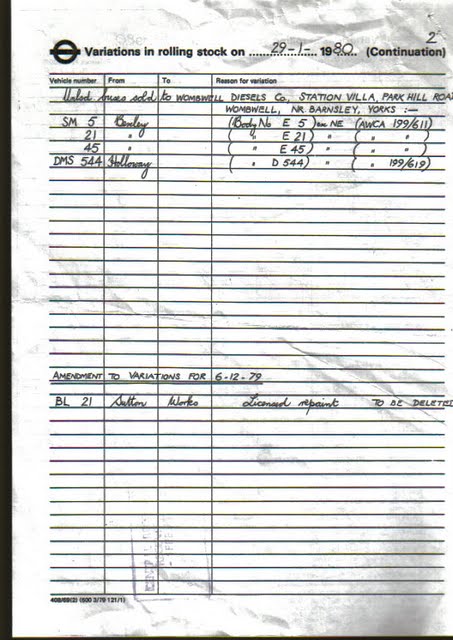 2
Variations in rolling stock on 29-1- 1980 (Continuation)
Vehicle number From To Reason for variation
Unlsd buses sold to WOMBWELL DIESELS Co, STATION VILLA, PARK HILL ROAD
WOMBWELL, NR BARNSLEY, YORKS :—
SM 5 Bexley (Body No E 5) ex NE (AWCA 199/611)
21 " ( " E 21) " ( " " )
45 " ( " E 45) " ( " " )
DMS 544 Holloway ( " D 544) " ( " 199/619)
AMENDMENT TO VARIATIONS FOR 6-12-79
BL 21 Sutton Works Licensed repaint TO BE DELETED
408/69(2) (500 3/79 121/1)